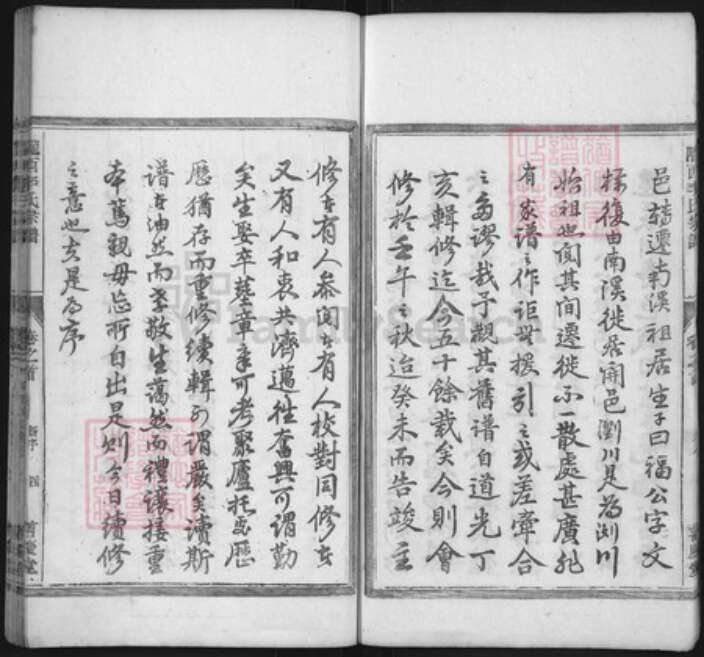 邑轉遷南溪祖居生子曰福公字文
採復由南溪徙居開邑瀏川是為瀏川
始祖也閱其間遷徙不一散處甚廣
有家譜之作詎無援引之或差牽合
之多謬哉予觀其舊譜自道光丁
亥輯修迄今五十餘載矣今則會
修於壬午之秋迨癸未而告竣主
修者有人參閱者有人校對同修者
又有人和衷共濟邁往奮興可謂勤
矣生娶卒墓章章可考聚廬托處歷
歷猶存而重修續輯可謂嚴矣讀斯
譜者油然而孝敬生藹然而禮讓接重
本篤親毋忘所自出是則今日續修
之意也夫是為序
隴西李氏宗譜
卷之首
序
四
FamilySearch